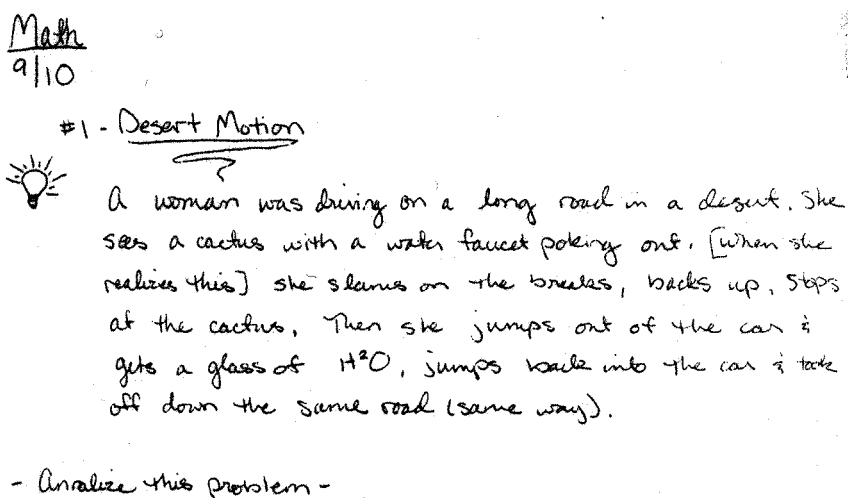 Math
9/10
#1 - Desert Motion
A woman was driving on a long road in a desert. She
sees a cactus with a water faucet poking out. [When she
realizes this] she slams on the breaks, backs up, stops
at the cactus. Then she jumps out of the car &
gets a glass of H²O, jumps back into the car & took
off down the same road (same way).
- Analize this problem -